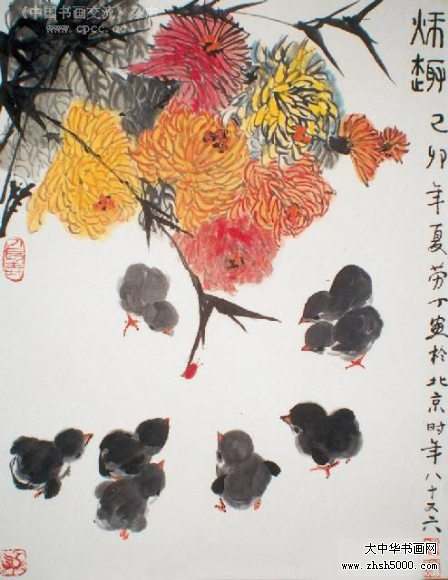 《中国书画交流》杂志
www.cpcc.cc
秋趣
己卯年夏劳丁画於北京时年八十又六
大中华书画网
www.zhsh5000.com